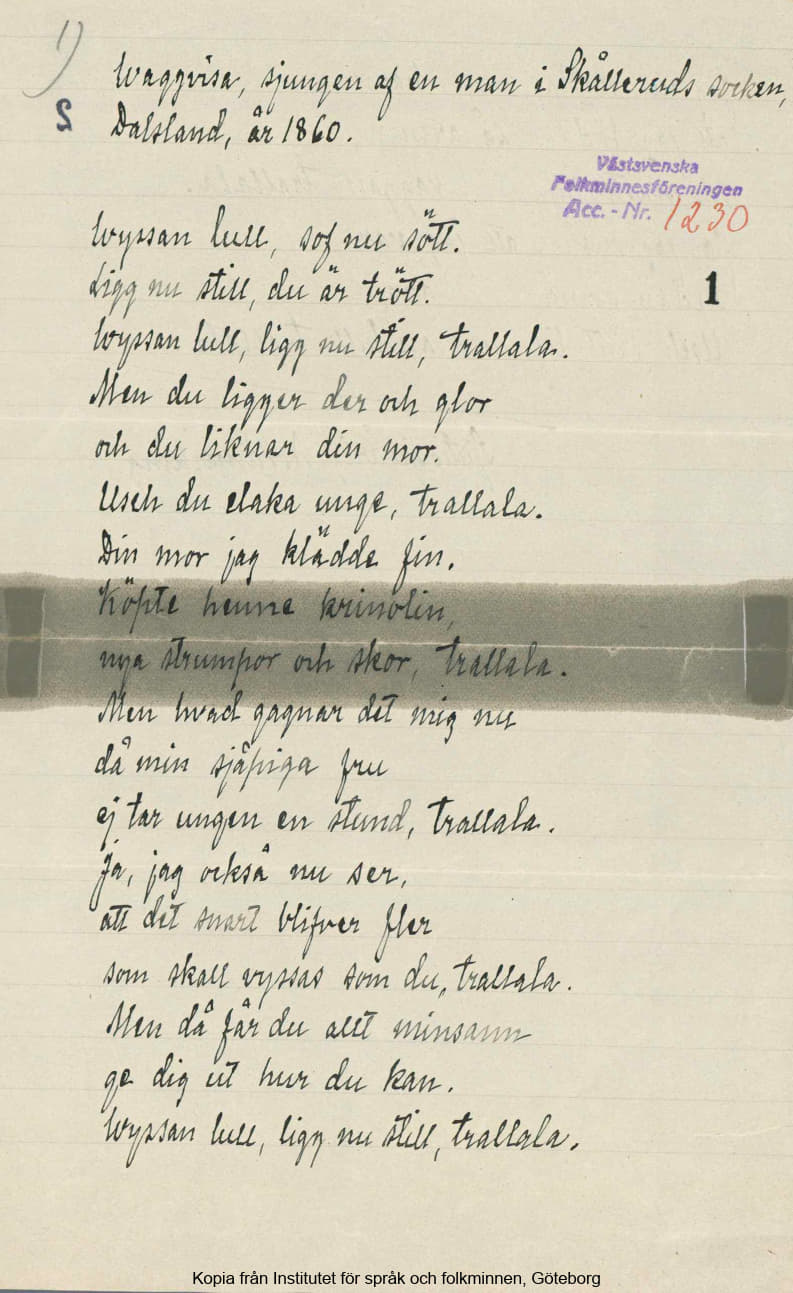 1)
Waggvisa, sjungen af en man i Skålleruds socken,
2
Dalsland, år 1860.
Västsvenska
Folkminnesföreningen
Acc. - Nr. 1230
Wyssan lull, sof nu sött.
Ligg nu still, du är trött.
1
Wyssan lull, ligg nu still, trallala.
Men du ligger der och glor
och du liknar din mor.
Usch du elaka unge, trallala.
Din mor jag klädde fin.
Köpte henne krinolin,
nya strumpor och skor, trallala.
Men hvad gagnar det mig nu
då min sjåpiga fru
ej tar ungen en stund, trallala.
Ja, jag också nu ser,
att det snart blifver fler
som skall vyssas som du, trallala.
Men då får du allt minsann
ge dig ut hur du kan.
Wyssan lull, ligg nu still, trallala.
Kopia från Institutet för språk och folkminnen, Göteborg